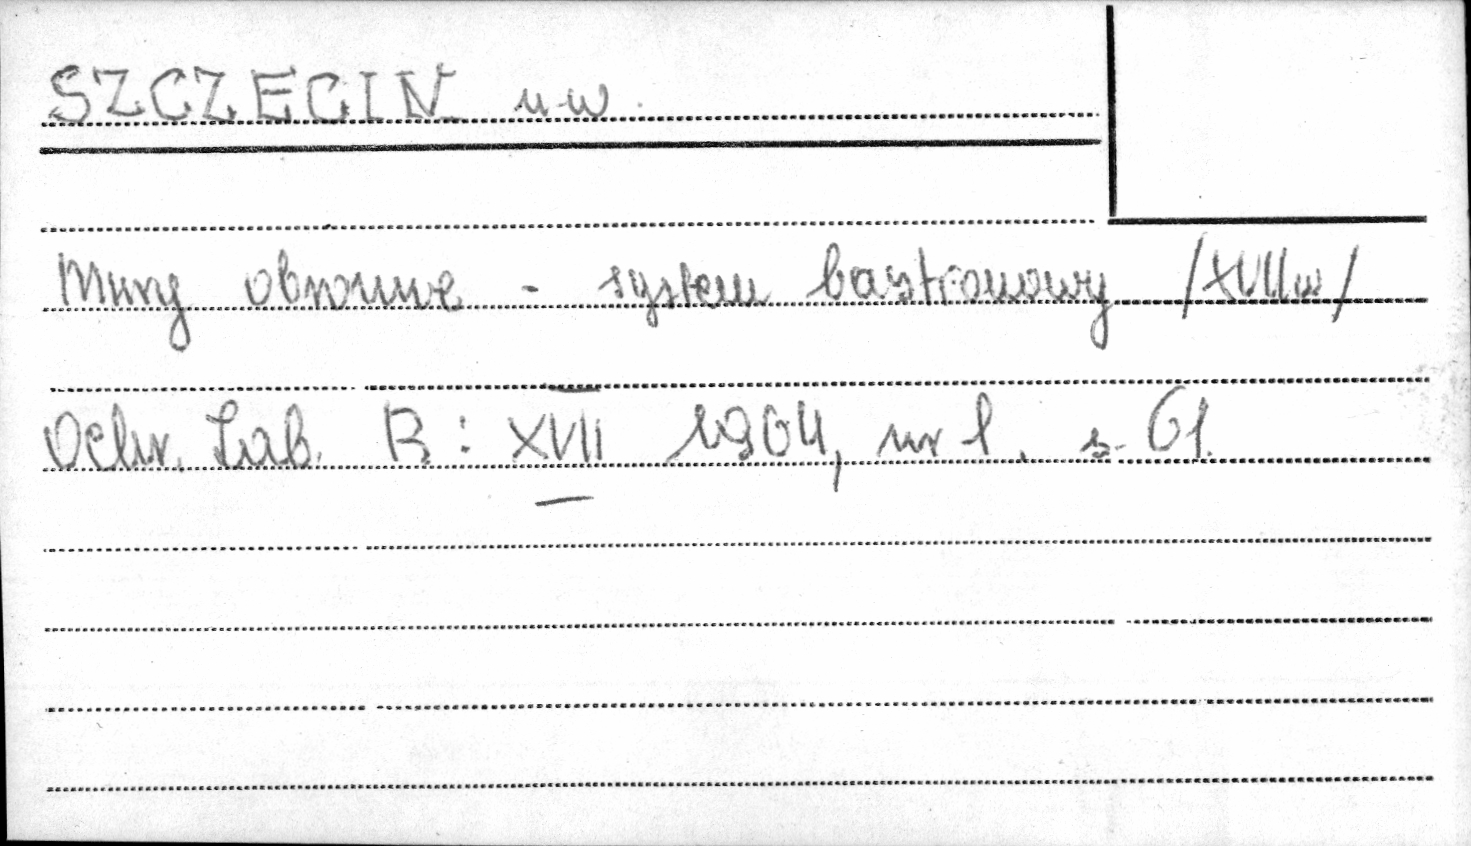 SZCZECIN m-w.
Mury obronne - system bastionowy /XVIIw/
Ochr. Zab. R: XVII 1964, nr 1. s. 61.